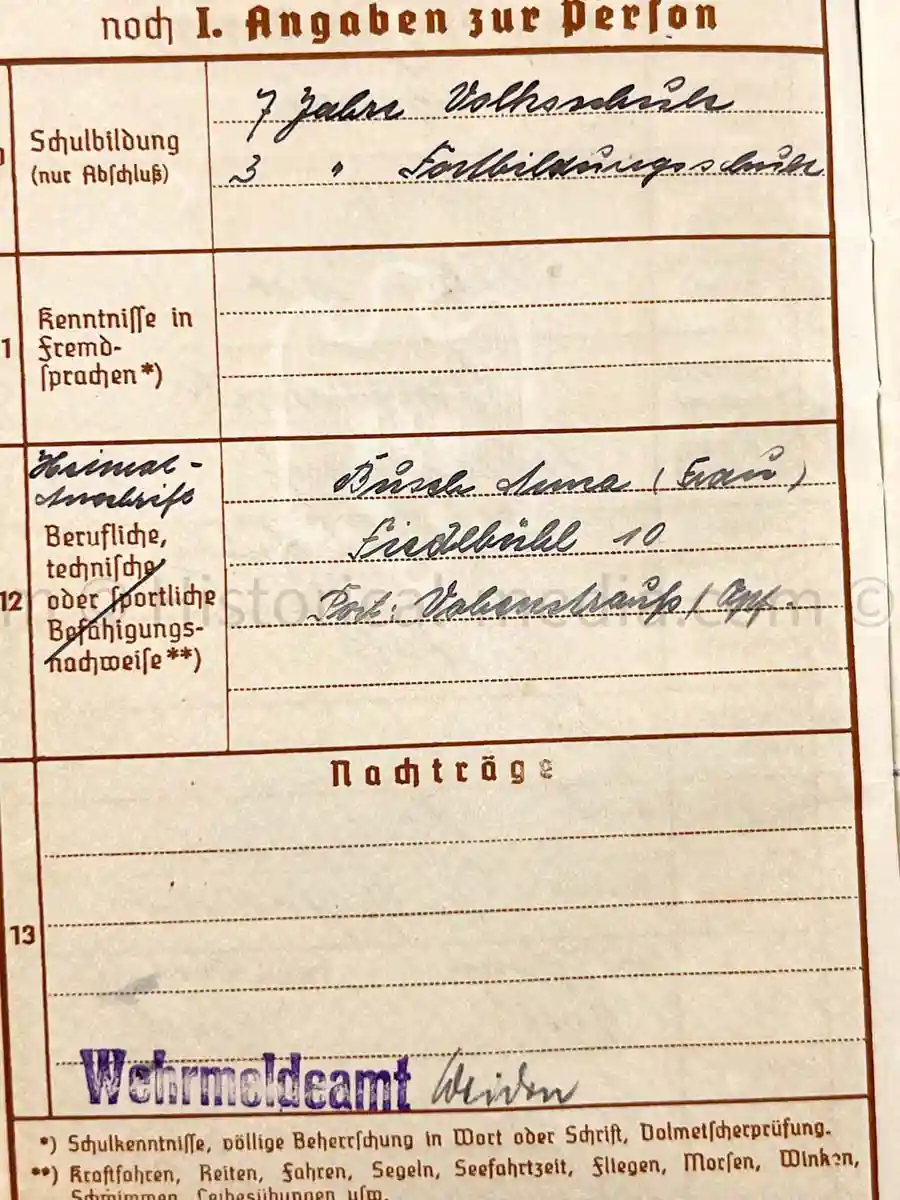 noch I. Angaben zur Person
Schulbildung
(nur Abschluß)
7 Jahre Volksschule
3 " Fortbildungsschule
1
Kenntnisse in
Fremd-
sprachen*)
12
Heimat-
Anschrift
Berufliche,
technische
oder sportliche
Befähigungs-
nachweise**)
Busch Anna (Frau)
Fiedlbühl 10
Post: Vohenstrauß / Opf.
Historicalmedia.com ©
Nachträge
13
Wehrmeldeamt Weiden
*) Schulkenntnisse, völlige Beherrschung in Wort oder Schrift, Dolmetscherprüfung.
**) Kraftfahren, Reiten, Fahren, Segeln, Seefahrtzeit, Fliegen, Morsen, Winken,
Schwimmen, Leibesübungen usw.